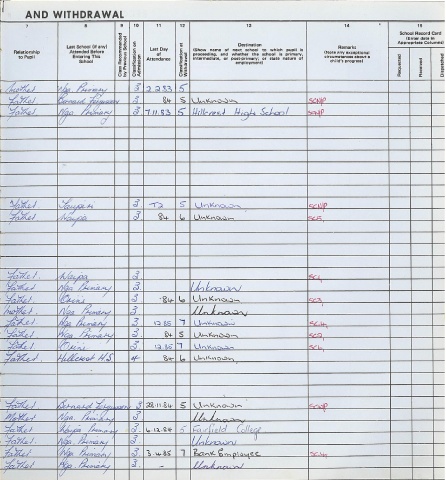 AND WITHDRAWAL
7 8 9 10 11 12 13 14 15
Relationship to Pupil
Last School (if any) Attended Before Entering This School
Class Recommended by Previous School
Classification on Admission
Last Day of Attendance
Classification at Withdrawal
Destination
(Show name of next school to which pupil is proceeding, and whether the school is primary, intermediate, or post-primary, or state nature of employment)
Remarks
(Note any exceptional circumstances about a child's progress)
School Record Card
(Enter date in Appropriate Columns)
Requested
Received
Despatched
Mother Nga. Primary 3 2.2.83 5
Father Bernard Fergusson 3 84 5 Unknown
Father Nga. Primary 3 7.11.83 5 Hillcrest High School
Father 3 5 Unknown
Father Waipa 3 84 6 Unknown
Father Waipa 3
Father Nga. Primary 3 Unknown
Father 3 84 6 Unknown
Mother Nga. Primary 3 Unknown
Father Nga. Primary 3 12.85 7 Unknown
Father Nga. Primary 3 84 5 Unknown
Father 3 12.85 7 Unknown
Father Hillcrest H.S. 4 84 6 Unknown
Father Bernard Fergusson 3 28.11.84 5 Unknown
Mother Nga. Primary 3 Unknown
Father Primary 3 6.12.84 5 Fairfield College
Father Nga. Primary 3 Unknown
Father Nga. Primary 3 3.4.85 7 Bank Employee
Father Nga. Primary 3 – Unknown